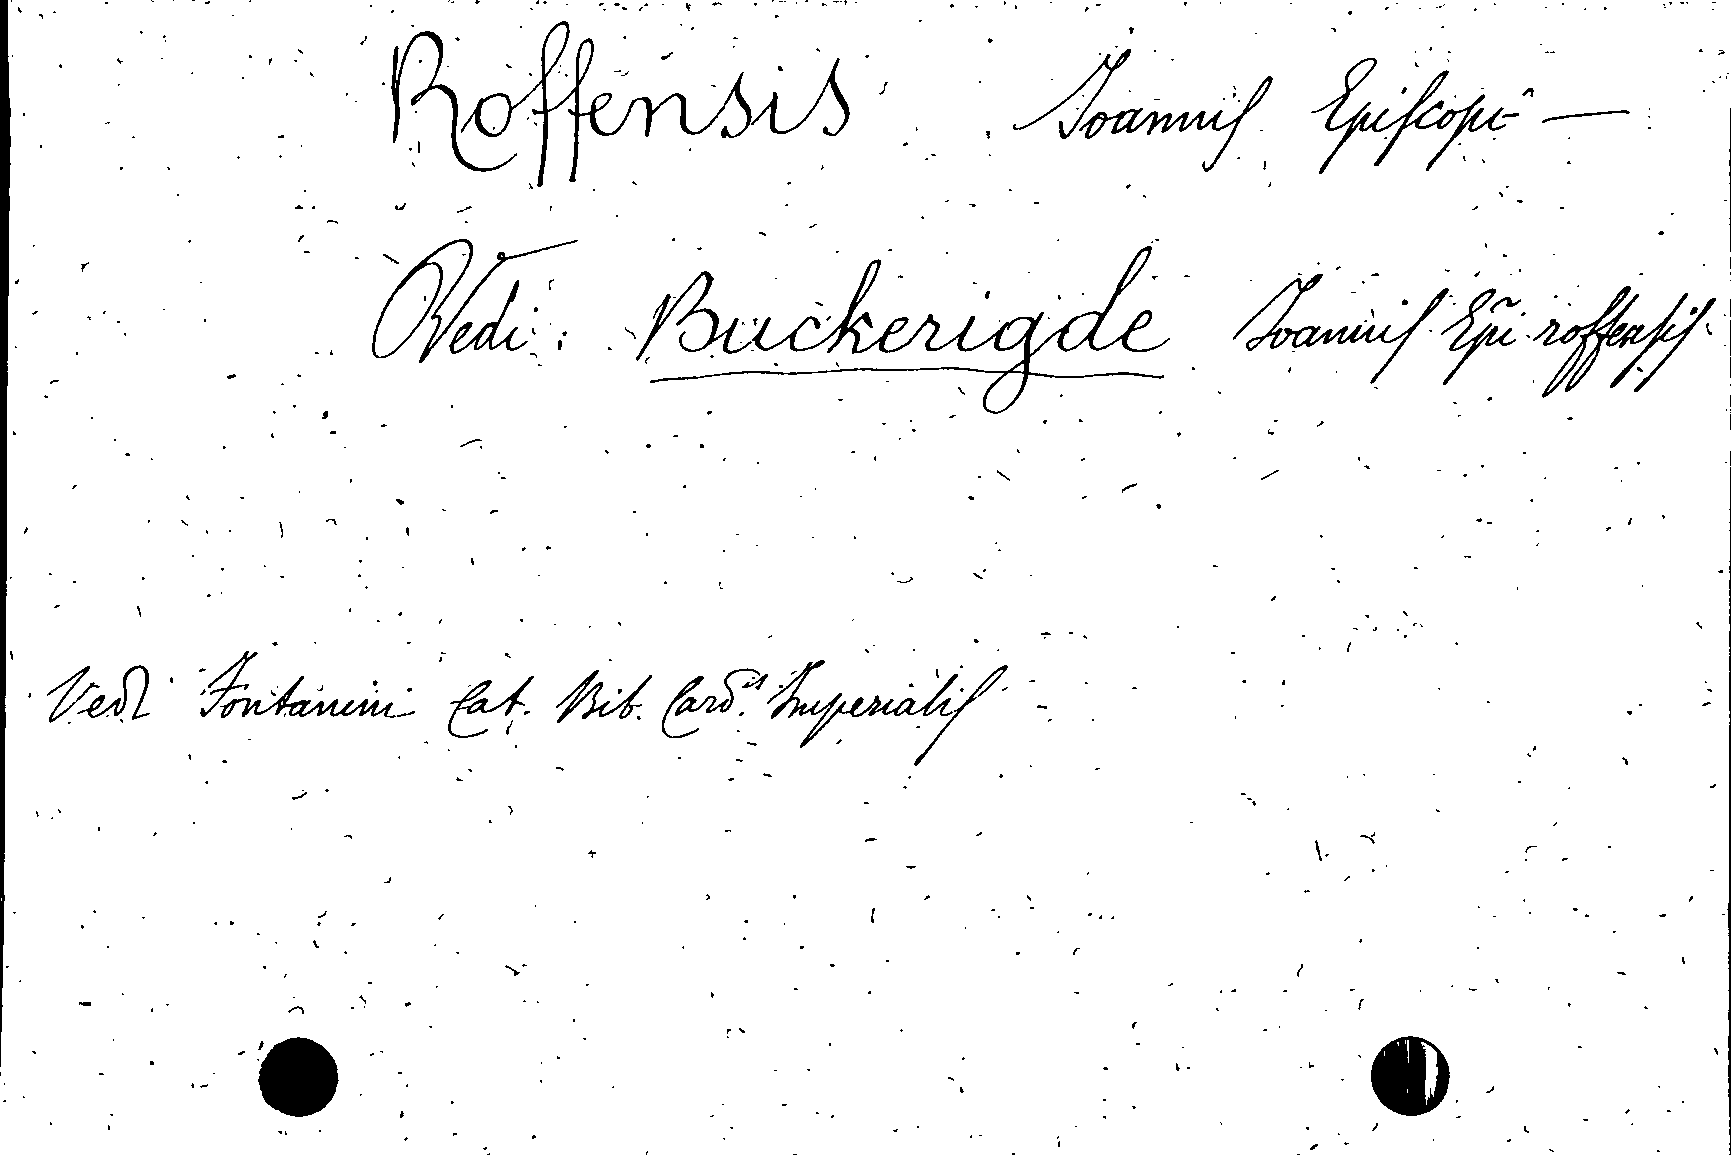 Roffensis Joannis Episcopi —
Vedi: Buckerigde Joannis Epi roffensis
Vedi Fontanini Cat. Bib. Card.is Imperialis